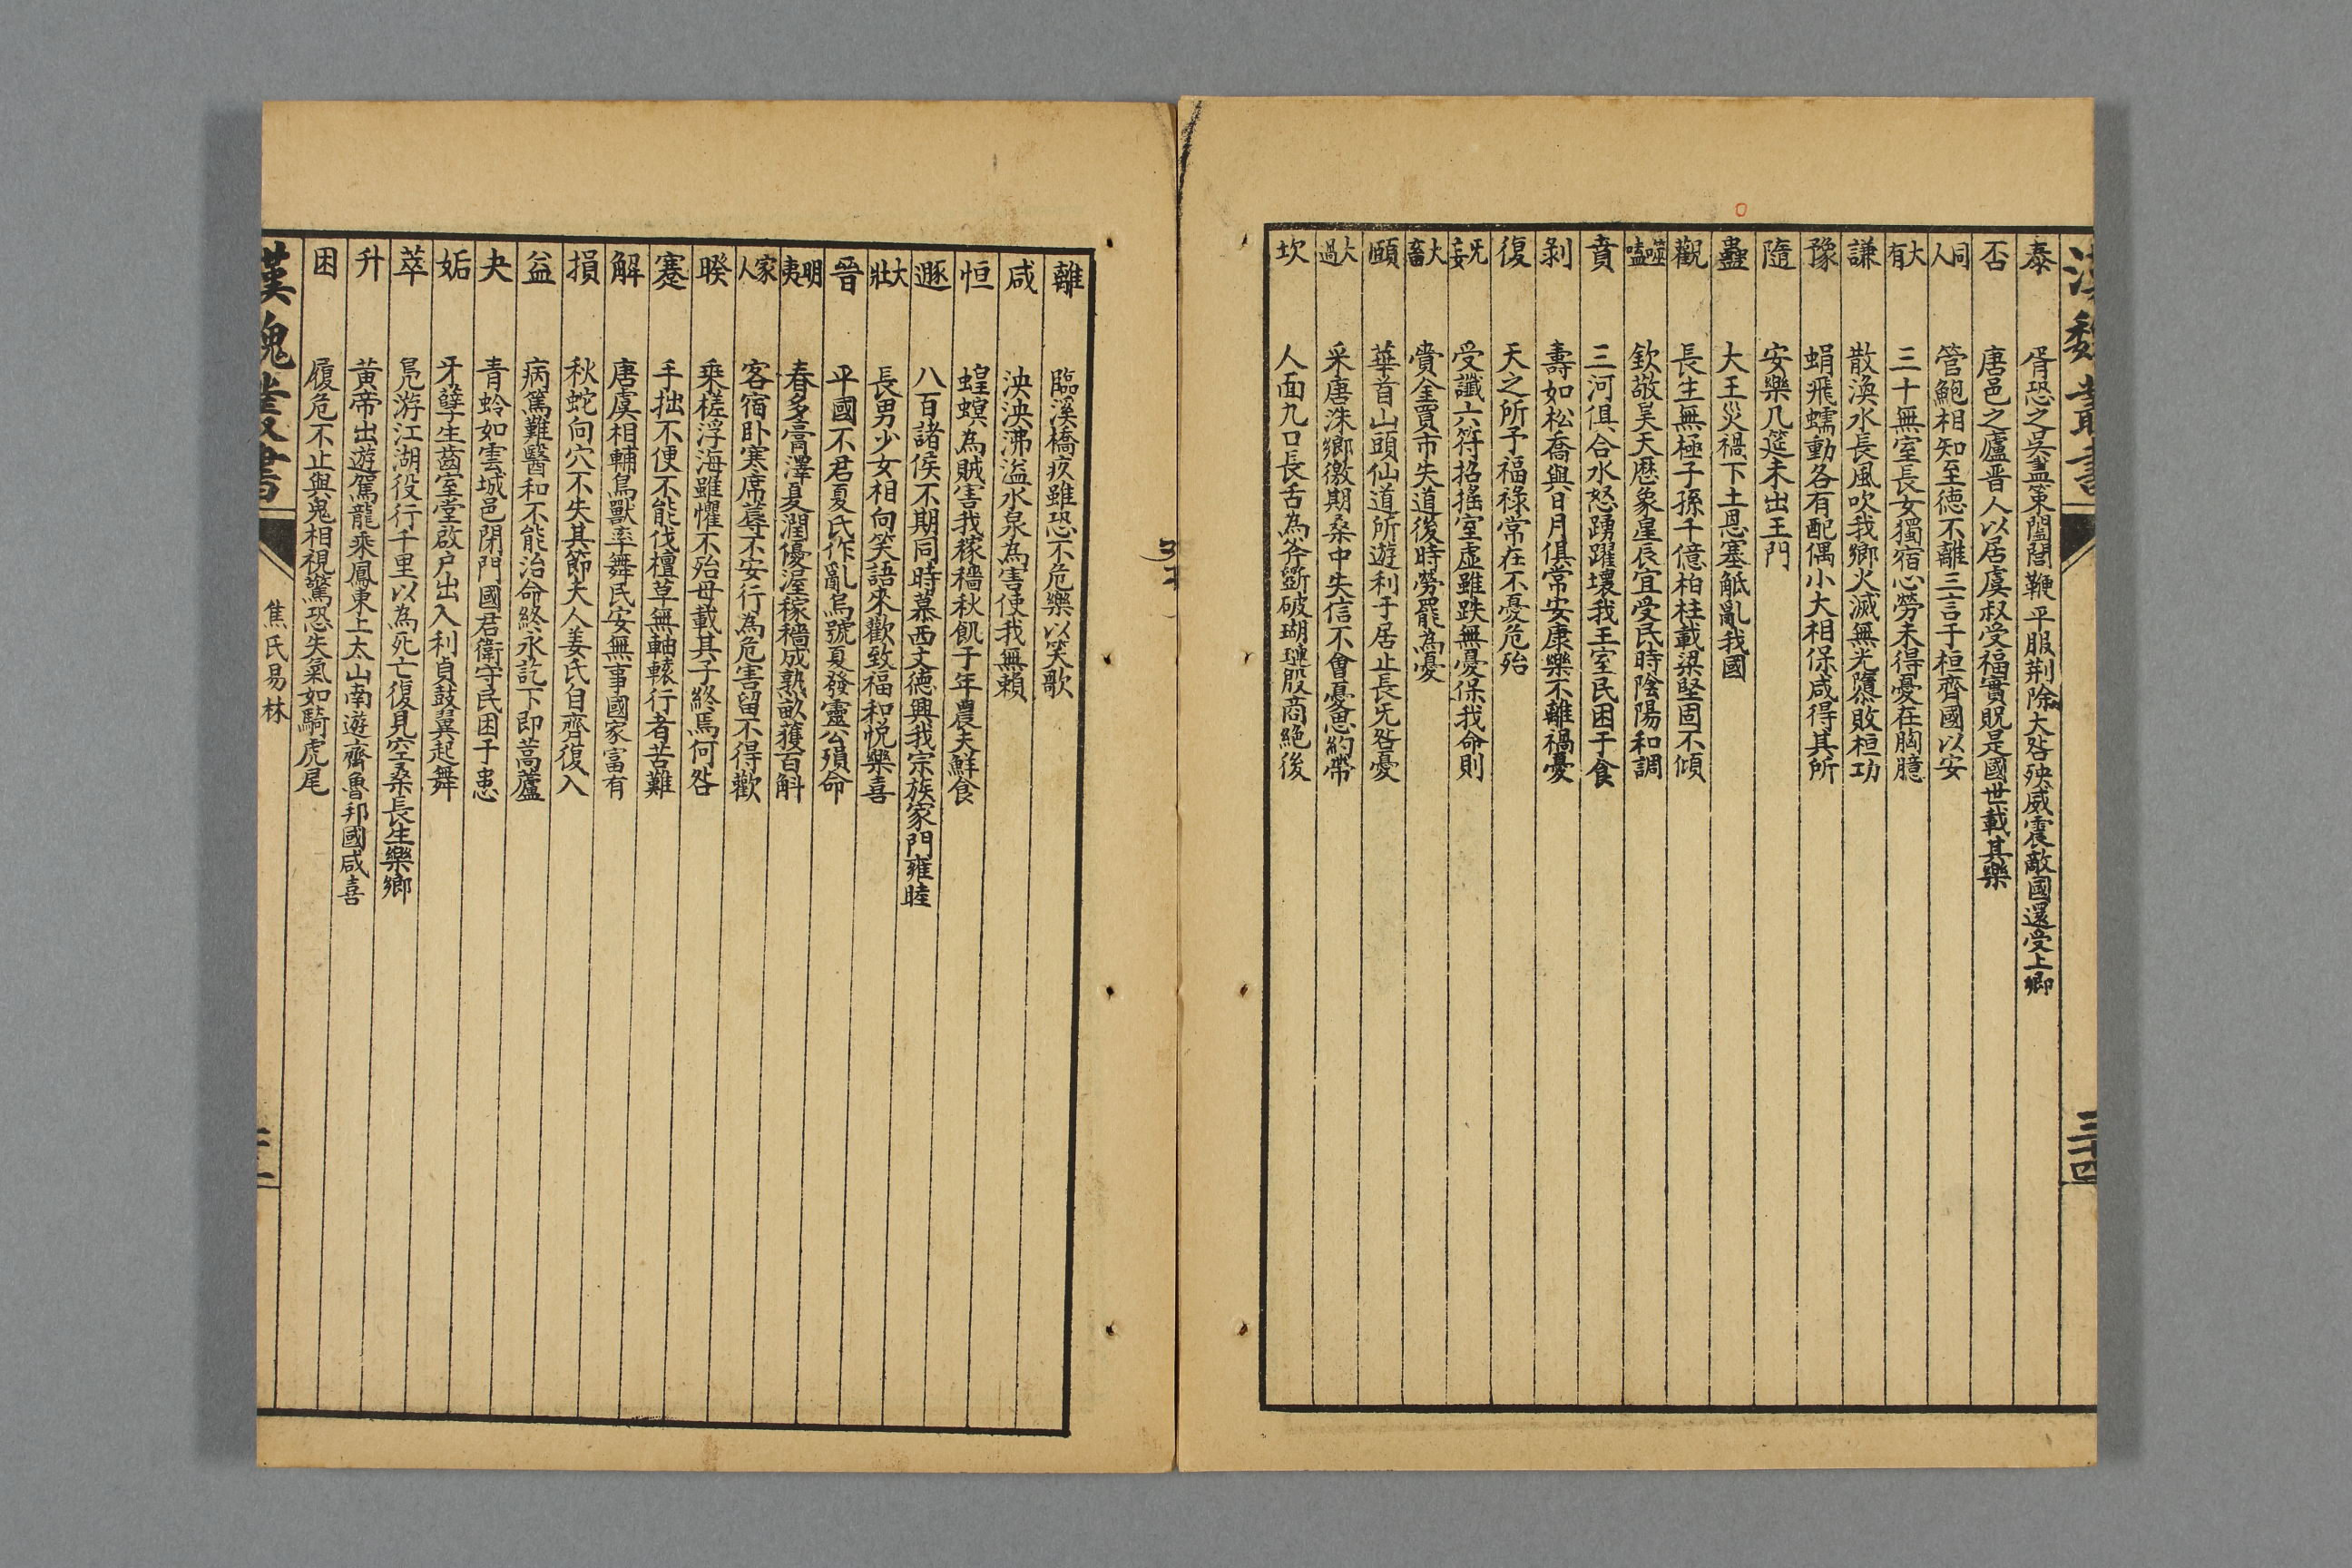 漢魏叢書 三十四
泰 胥恐之吳盡策闔閭鞭平服荆除大咎殃威震敵國還受上卿
否 唐邑之廬晋人以居虞叔受福實貺是國世載其樂
同人 管鮑相知至德不離三言于桓齊國以安
大有 三十無室長女獨宿心勞未得憂在胸臆
謙 散渙水長風吹我鄉火滅無光隳敗桓功
豫 蜎飛蠕動各有配偶小大相保咸得其所
隨 安樂几筵未出王門
蠱 大王災禍下土恩塞觝亂我國
觀 長生無極子孫千億柏柱載梁堅固不傾
噬嗑 欽敬昊天歷象皇辰宜受民時陰陽和調
賁 三河俱合水怒踴躍壞我王室民困于食
剥 壽如松喬與日月俱常安康樂不離禍憂
復 天之所予福祿常在不憂危殆
无妄 受讖六符招搖室虛雖跌無憂保我命則
大畜 賫金買市失道後時勞罷為憂
頤 華首山頭仙道所遊利于居止長无咎憂
大過 采唐洙鄉徼期桑中失信不會憂思約帶
坎 人面九口長舌為斧斲破瑚璉殷商絶後
離 臨溪橋疚雖恐不危樂以笑歌
咸 泱泱沸溢水泉為害使我無賴
恒 蝗螟為賊害我稼穡秋飢于年農夫鮮食
遯 八百諸侯不期同時慕西文德興我宗族家門雍睦
大壯 長男少女相向笑語來歡致福和悦樂喜
晉 平國不君夏氏作亂烏號夏發靈公殞命
明夷 春多膏澤夏潤優渥稼穡成熟畝獲百斛
家人 客宿卧寒席蓐不安行為危害留不得歡
睽 乘槎浮海雖懼不殆母載其子終焉何咎
蹇 手拙不便不能伐檀草無軸轅行者苦難
解 唐虞相輔鳥獸率舞民安無事國家富有
損 秋蛇向穴不失其節夫人姜氏自齊復入
益 病篤難醫和不能治命終永訖下即蒿蘆
夬 青蛉如雲城邑閉門國君衛守民困于患
姤 牙孽生齒室堂啟户出入利貞鼓翼起舞
萃 鳧游江湖役行千里以為死亡復見空桑長生樂鄉
升 黄帝出遊駕龍乘鳳東上太山南遊齊魯邦國咸喜
困 履危不止與鬼相視驚恐失氣如騎虎尾
漢魏叢書 焦氏易林